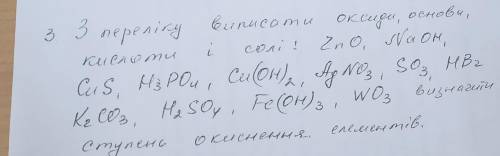 3 З переліку виписати оксиди, основи,
кислоти і солі! ZnO, NaOH,
CuS, H3PO4, Cu(OH)2, AgNO3, SO3, HBr
K2CO3, H2SO4, Fe(OH)3, WO3 визначити
ступень окиснення елементів.